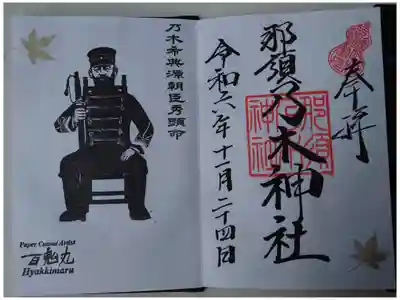 奉拝
那須乃木神社
那須
乃木
神社
令和六年十一月二十四日
乃木希典源朝臣
命
Paper Cutout Artist
百鬼丸
Hyakkimaru